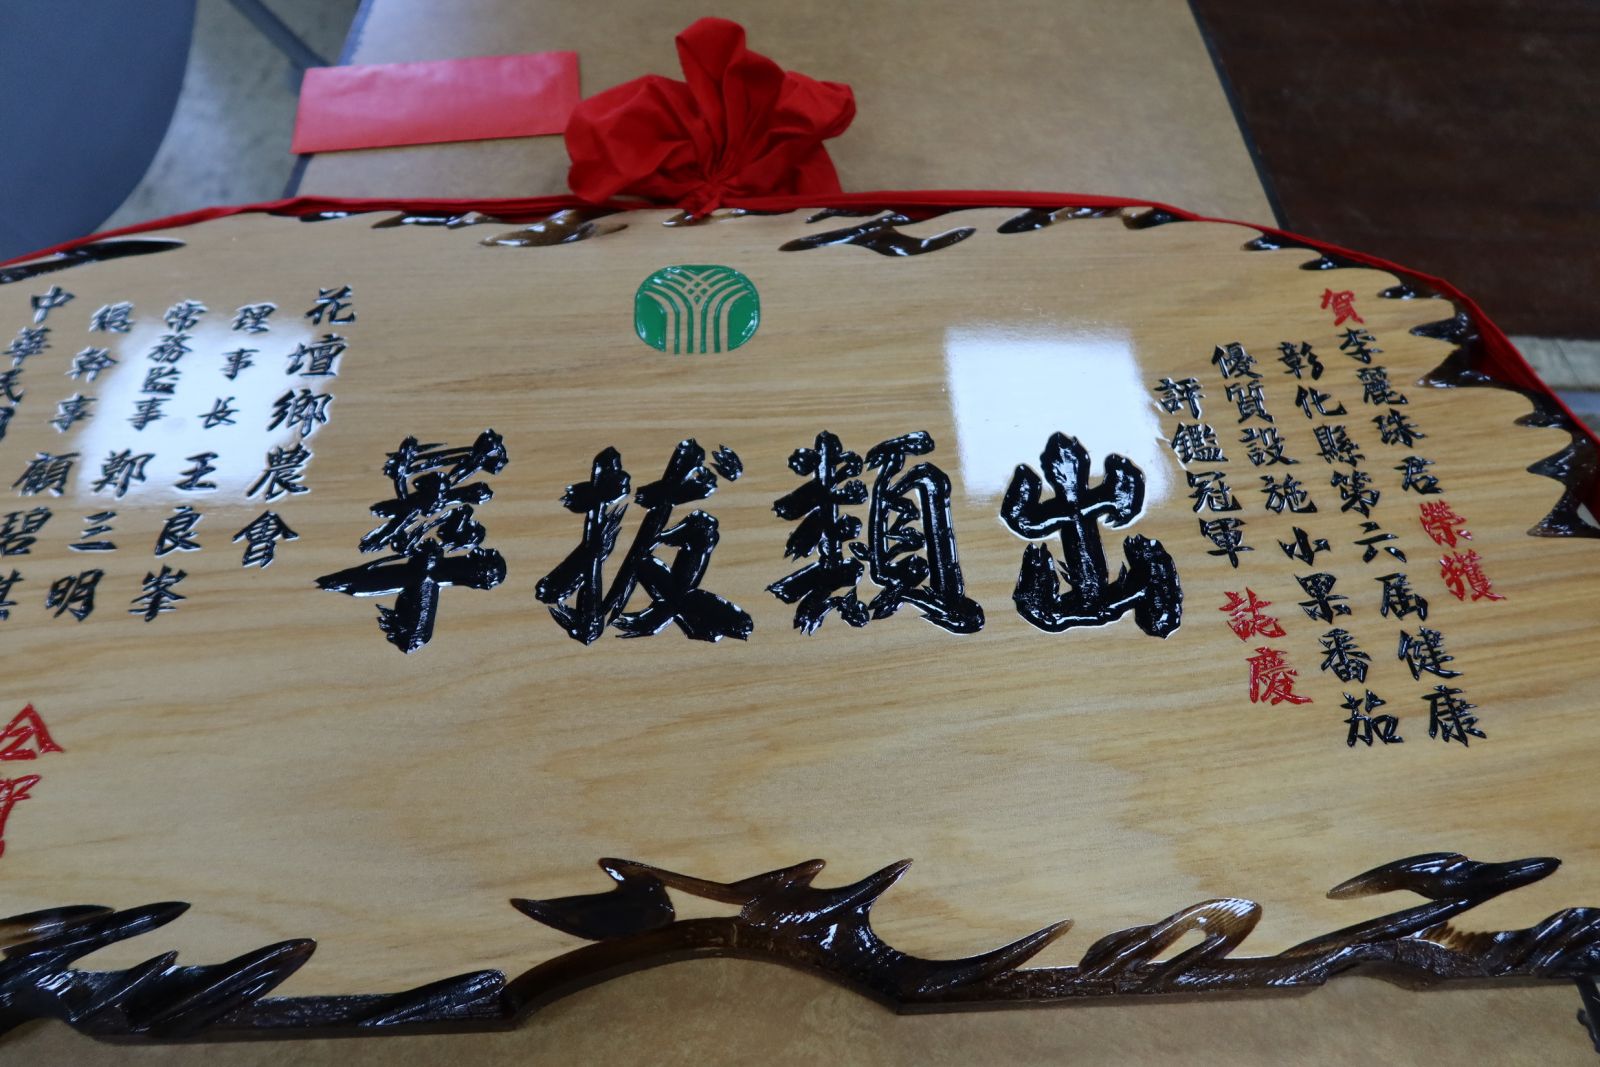 賀李麗珠君榮獲
彰化縣第六屆健康
優質設施小果番茄
評鑑冠軍 誌慶
出類拔萃
花壇鄉農會
理事長 王良峯
常務監事 鄭三明
總幹事 顧碧琪
中華民國
仝